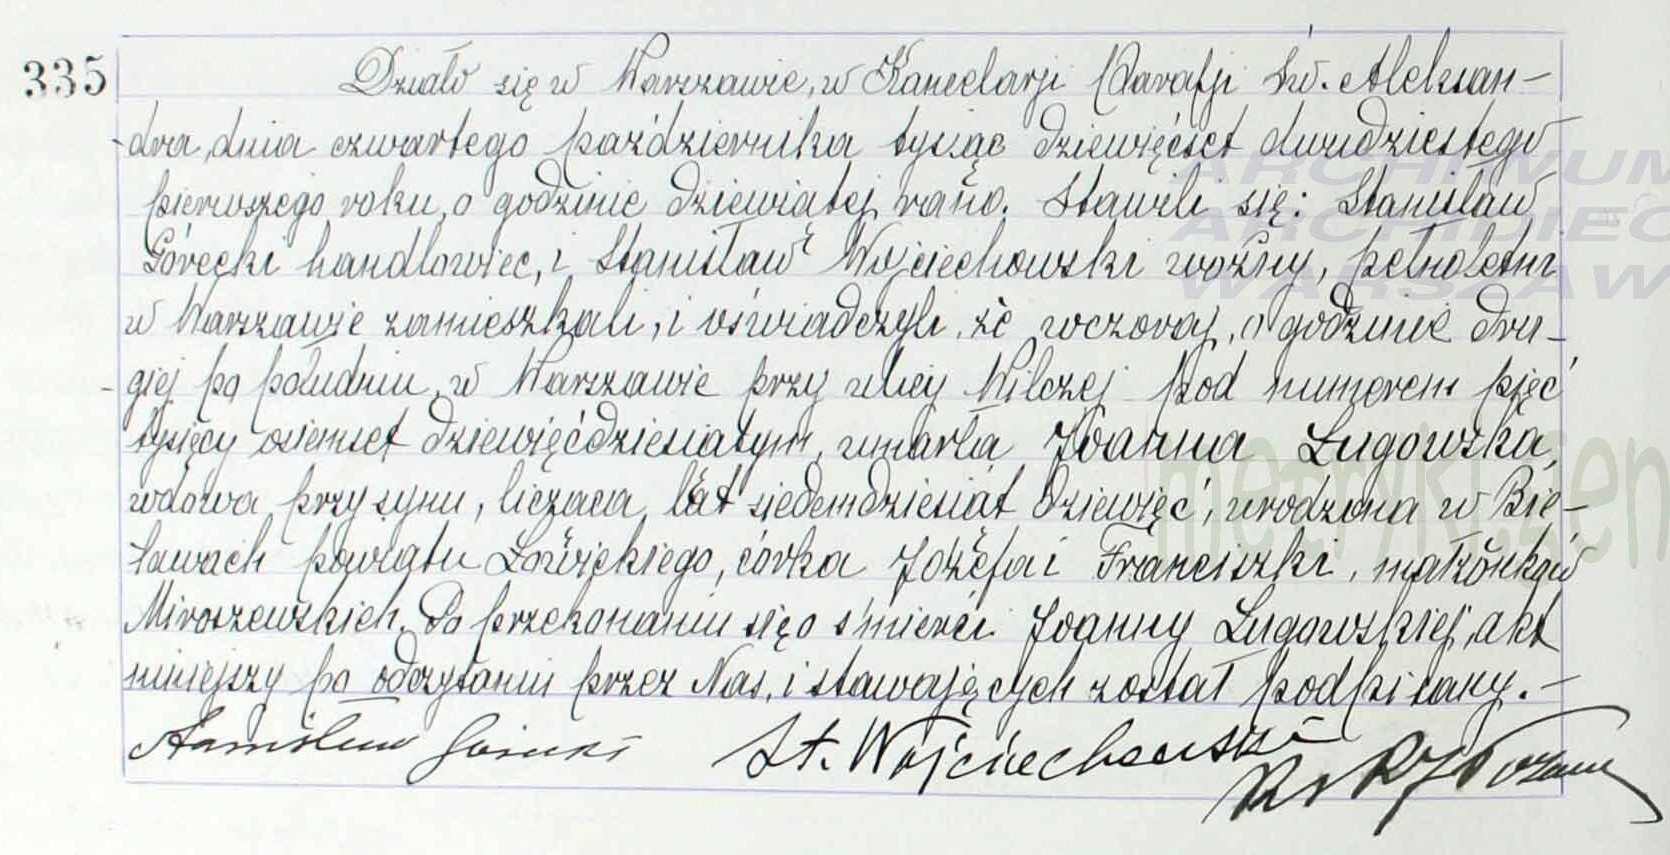 335
Działo się w Warszawie, w Kancelarji Parafji św. Aleksan-
dra, dnia czwartego października tysiąc dziewięćset dwudziestego
pierwszego roku, o godzinie dziewiątej rano. Stawili się: Stanisław
Górecki handlowiec, i Stanisław Wojciechowski woźny, pełnoletni
w Warszawie zamieszkali, i oświadczyli, że wczoraj, o godzinie dru-
giej po południu, w Warszawie przy ulicy Wilczej pod numerem pięć
tysięcy osiemset dziewięćdziesiątym, umarła Joanna Ługowska,
wdowa przy synu, licząca lat siedemdziesiąt dziewięć, urodzona w Bie-
ławach powiatu Łowickiego, córka Józefa i Franciszki, małżonków
Miroszewskich. Po przekonaniu się o śmierci Joanny Ługowskiej, akt
niniejszy po odczytaniu przez Nas, i stawających został podpisany. -
Stanisław Górecki St. Wojciechowski
ARCHIWUM
ARCHIDIEC
WARSZAW
metryki.gen